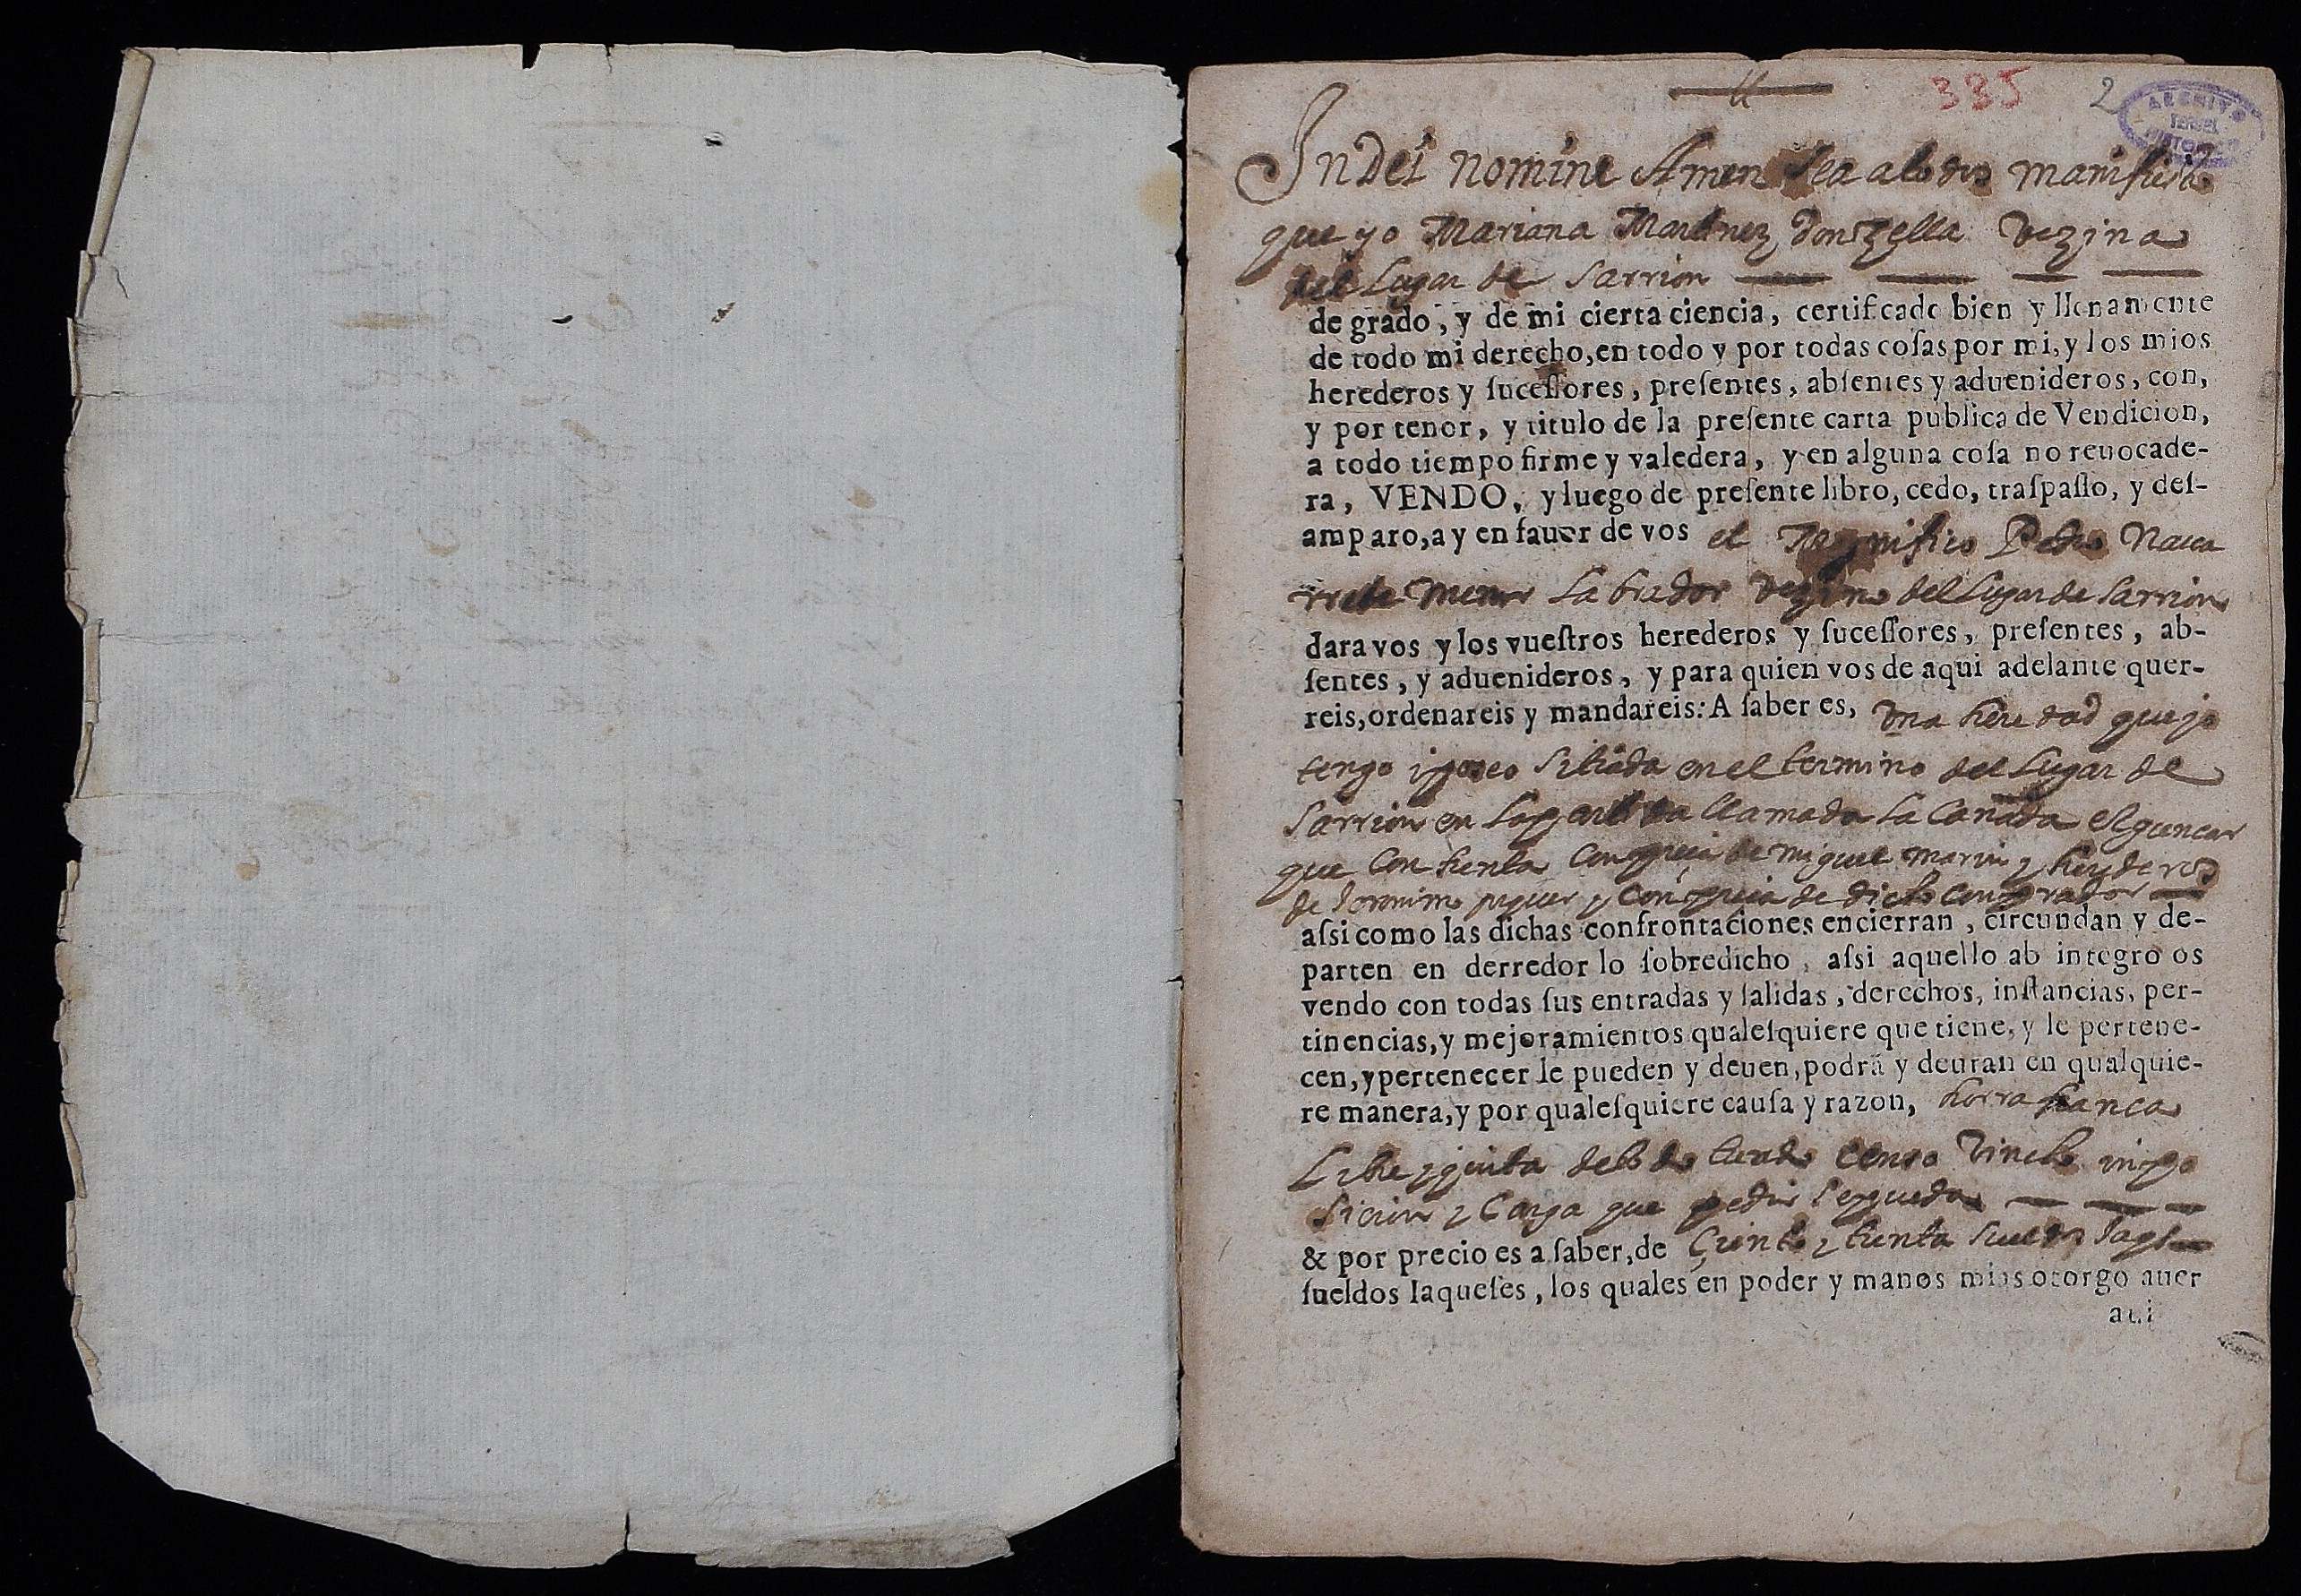 335 2
ARCHIVO
TERUEL
HISTORICO
In Dei nomine Amen sea a todos manifiesto
que yo Mariana Martinez donzella vezina
del Lugar de Sarrion
de grado, y de mi cierta ciencia, certificado bien y llenamente
de todo mi derecho, en todo y por todas coſas por mi, y los mios
herederos y ſuceſſores, preſentes, abſentes y aduenideros, con,
y por tenor, y titulo de la preſente carta publica de Vendicion,
a todo tiempo firme y valedera, y en alguna coſa no reuocade-
ra, VENDO, y luego de preſente libro, cedo, traſpaſſo, y deſ-
amparo, a y en fauor de vos el Magnifico Pedro Naua
rrete menor Labrador vezino del Lugar de Sarrion
dar a vos y los vueſtros herederos y ſuceſſores, preſentes, ab-
ſentes, y aduenideros, y para quien vos de aqui adelante quer-
reis, ordenareis y mandareis: A ſaber es, vna heredad que yo
tengo i poseo sitiada en el termino del Lugar de
Sarrion en la partida llamada la Cañada el
que con de miguel marin y
de Jeronimo y con de dicho comprador
aſsi como las dichas confrontaciones encierran, circundan y de-
parten en derredor lo ſobredicho, aſsi aquello ab integro os
vendo con todas ſus entradas y ſalidas, derechos, inſtancias, per-
tinencias, y mejoramientos qualeſquiere que tiene, y le pertene-
cen, y pertenecer le pueden y deuen, podrã y deuran en qualquie-
re manera, y por qualeſquiere cauſa y razon, horra franca
Libre y quita de todo treudo censo vinclo inpo
sicion y Carga que pedir se pueda
& por precio es a ſaber, de Ciento y trenta sueldos
ſueldos Iaqueſes, los quales en poder y manos mias otorgo auer
aui